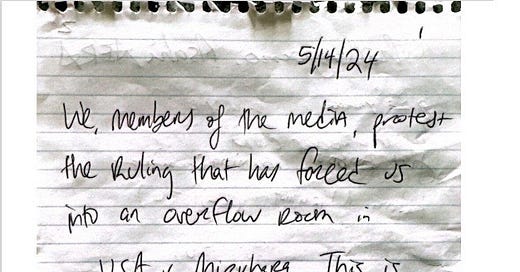 5/14/24
We, members of the media, protest
the Ruling that has forced us
into an overflow room in
USA v. This is